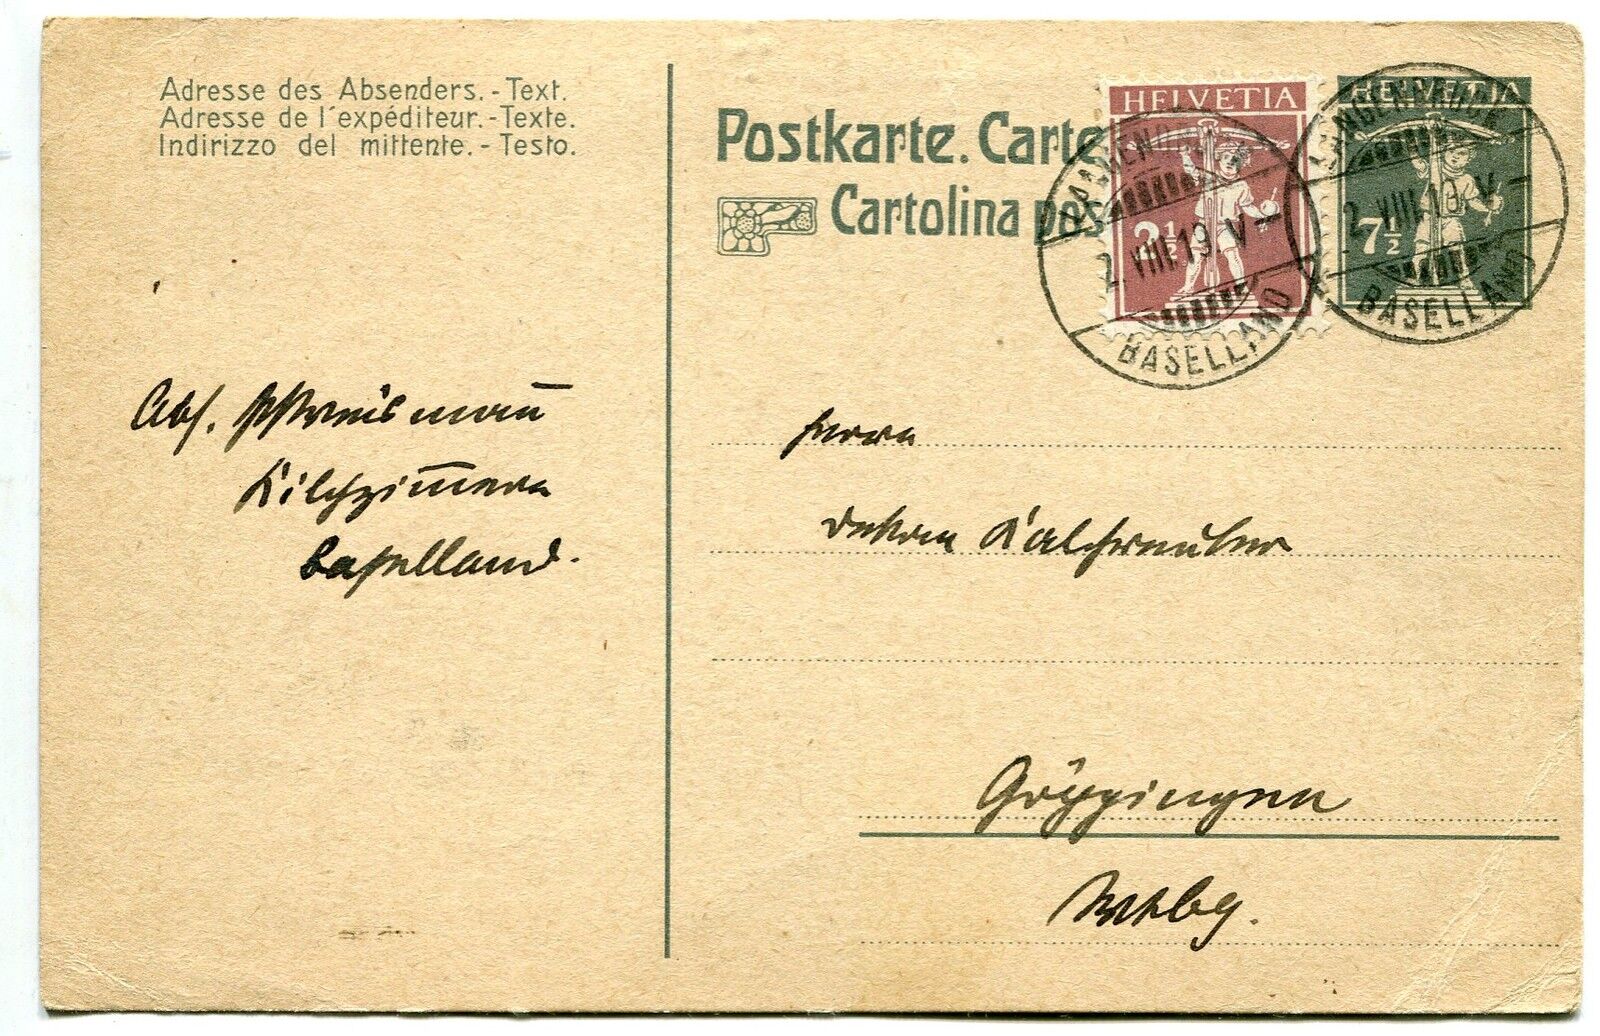 Adresse des Absenders. - Text.
Adresse de l'expéditeur. - Texte.
Indirizzo del mittente. - Testo.
Postkarte. Carte
Cartolina pos
HELVETIA
2½
HELVETIA
7½
LANGENBRUCK
2. VIII. 19. V -
BASELLAND
LANGENBRUCK
2. VIII. 19. V -
BASELLAND
Abs.
Kilchzimmern
Baselland.
Herrn
Dekan
Göppingen
Wtbg.